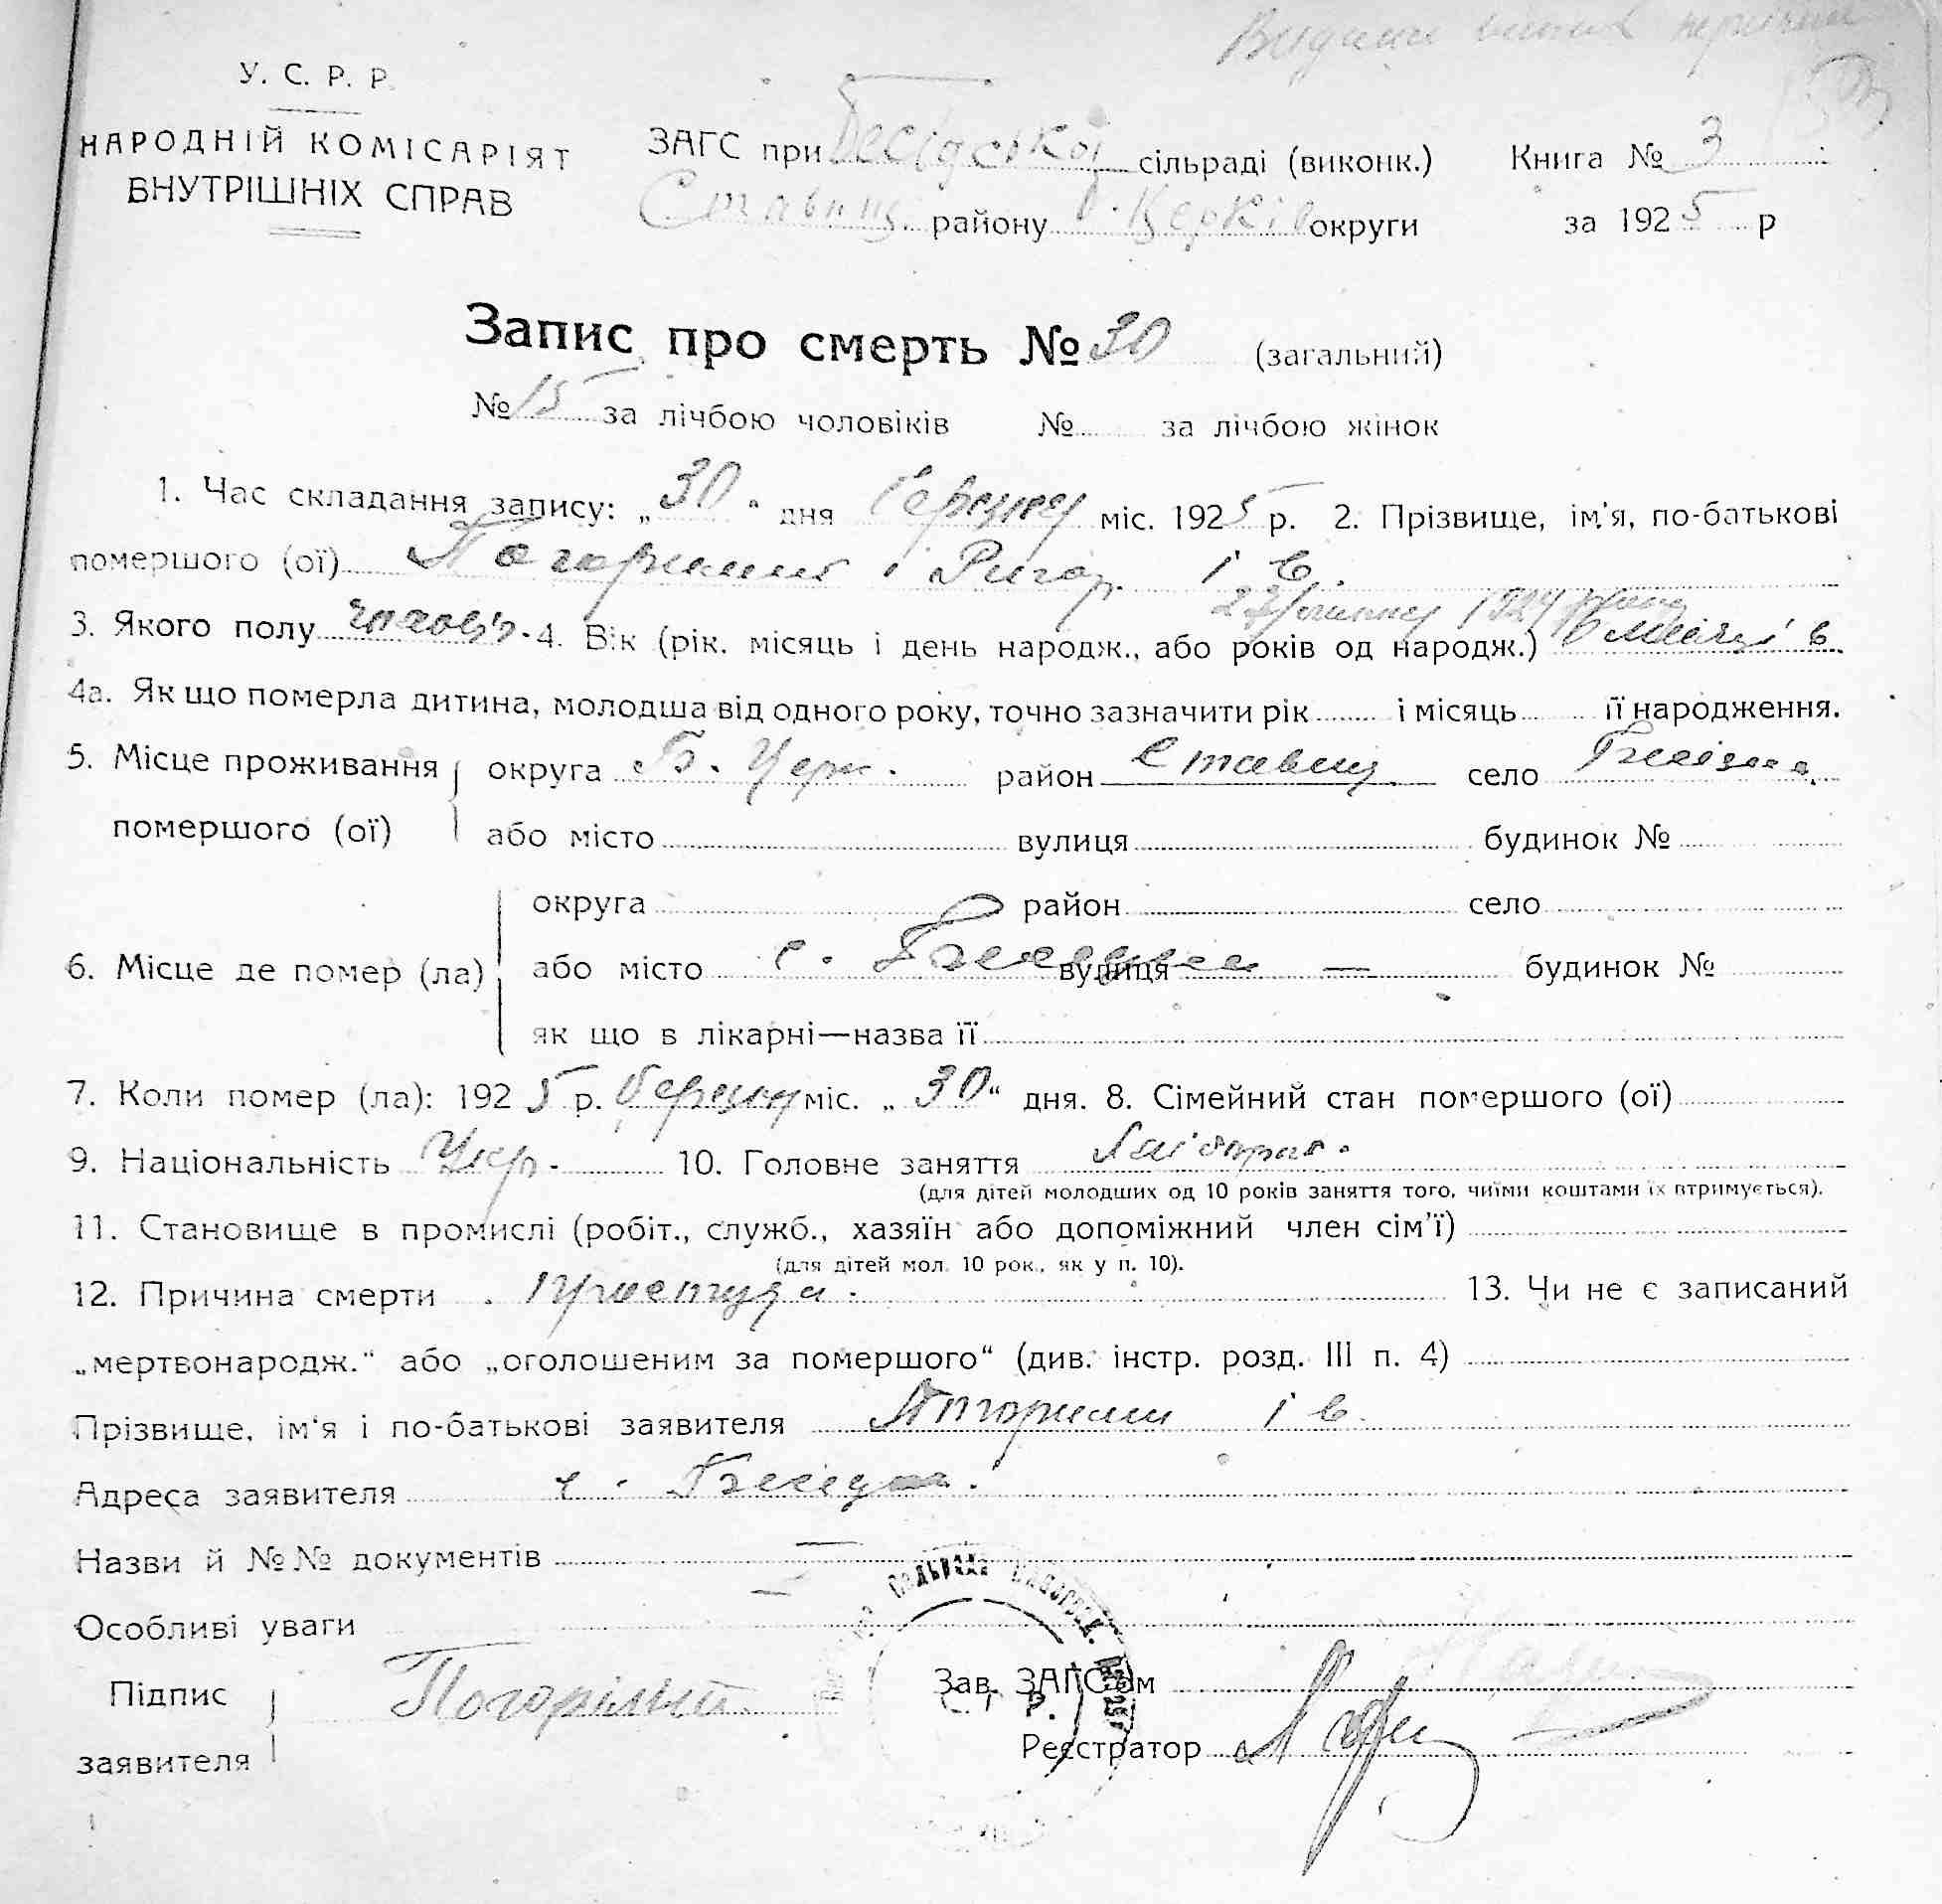 У. С. Р. Р.
НАРОДНІЙ КОМІСАРІЯТ
ВНУТРІШНІХ СПРАВ
ЗАГС при Бесідської сільраді (виконк.) Книга № 3
Ставищ. району Б. Церків округи за 1925 р
Запис про смерть № 30 (загальний)
№ 15 за лічбою чоловіків № за лічбою жінок
1. Час складання запису: „30“ дня березня міс. 1925 р. 2. Прізвище, ім'я, по-батькові
помершого (ої) Григор. І. В.
1924
3. Якого полу чолов'ч. 4. Вік (рік. місяць і день народж., або років од народж.)
4а. Як що померла дитина, молодша від одного року, точно зазначити рік і місяць її народження.
5. Місце проживання округа Б. Церк. район Ставищ. село Бесідка.
помершого (ої) або місто вулиця будинок №
округа район село
6. Місце де помер (ла) або місто с. Бесідка вулиця — будинок №
як що в лікарні—назва її
7. Коли помер (ла): 1925 р. березня міс. „30“ дня. 8. Сімейний стан помершого (ої)
9. Національність Укр. 10. Головне заняття Хлібороб.
(для дітей молодших од 10 років заняття того, чиїми коштами їх втримується).
11. Становище в промислі (робіт., служб., хазяїн або допоміжний член сім'ї)
(для дітей мол. 10 рок., як у п. 10).
12. Причина смерти простуда. 13. Чи не є записаний
„мертвонародж.“ або „оголошеним за помершого“ (див. інстр. розд. III п. 4)
Прізвище, ім'я і по-батькові заявителя І В.
Адреса заявителя с. Бесідка.
Назви й №№ документів —
Особливі уваги
Підпис Погорілий Зав. ЗАГС'ом
заявителя Реєстратор